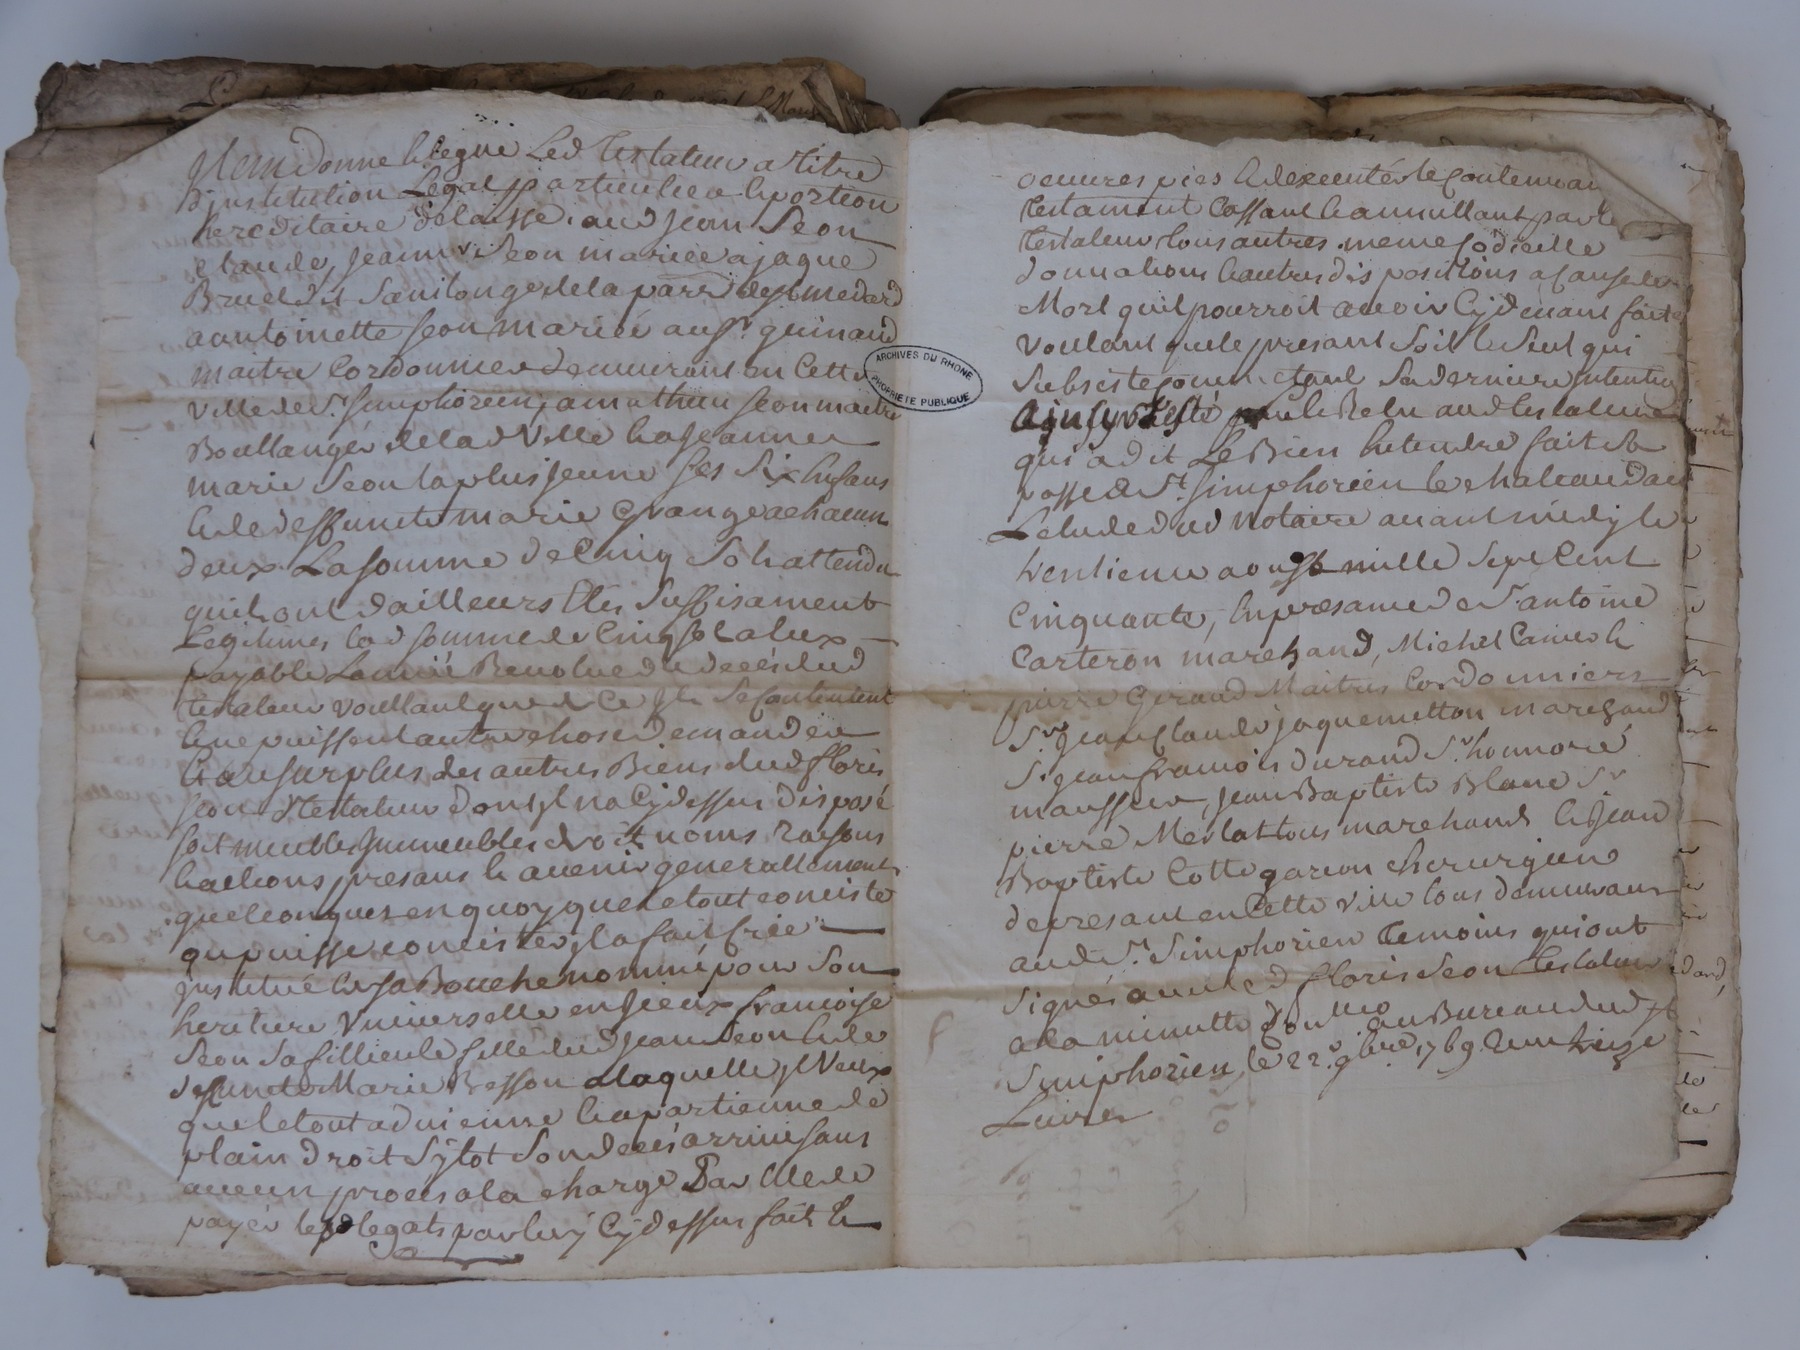 Item donne & legue Led testateur a titre
d'institution Legat particulier & portion
hereditaire delaisse aud jean Seon
claude, jeanne Seon mariée a jaque
Bruel dit Saintonge de la parr de St medard
a antoinette Seon mariée au Sr guinand
maitre Cordonnier demeurant en Cette
Ville de St Simphorien, a mathieu Seon maitre
Boullanger de lad Ville & a jeanne
marie Seon la plus jeune Ses Six Enfans
& de deffuncte marie Grange a chacun
deux La somme de Cinq Sols attendu
quils ont d'ailleurs Etés Suffisament
Legitimes lad somme de Cinq sols a eux
payable L'année Revolue du decés dud
testateur voullant que de ce Ils Se Contentent
& ne puissent autre chose demander
& au surplus des autres Biens dud floris
Seon testateur dont Il na Cy dessus disposé
soit meubles Immeubles droits noms raisons
& actions presans & avenir generallement
quelconques en quoy que le tout conciste
ou puisse concister Il a fait crée
Institué & de sa Bouche nommé pour Son
heritiere Universelle en sieux francoise
Seon Sa fillieule fille dud Jean Seon & de
deffuncte Marie Besson a laquelle Il Veux
que le tout advienne & apartienne de
plain droit Sytot Son decés arrivé sans
aucun procès a la charge Par Elle de
payer les legats par luy Cy dessus fait &
ARCHIVES DU RHONE
PROPRIETE PUBLIQUE
oeuvres pies & dexecuter le Contenu au
testament Cassant & annullant par le
testateur tous autres meme Codicille
donnations & autres dispositions a Cause de
Mort quil pourroit avoir Cy devant faites
Voulant que le presant Soit le Seul qui
Subsiste comme etant Sa derniere Intention
Ainsy testé & Relu aud testateur
qui a dit Le Bien Entendre fait &
passé a St Simphorien le chateau dans
L'etude dud Notaire avant midy le
trentieme aoust mille Sept Cent
Cinquante, En presance de Sr antoine
Carteron marchand, Michel &
pierre Geraud Maitres Cordonniers
Sr Jean Claude jaquemetton marchand
Sr jean francois durand Sr honnoré
Jean Baptiste Blanc Sr
pierre Meslat tous marchands & Jean
Baptiste Cotte garcon chirurgien
de presant en Cette ville tous demeurans
aud St Simphorien temoins qui ont
Signés avec led floris Seon testateur
a la minutte Au Bureau dud St
Simphorien le 22 9bre 1769 Recu treize
Livres